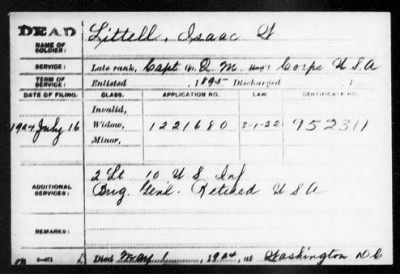 DEAD
NAME OF SOLDIER: Littell, Isaac W
SERVICE: Late rank, Capt Q. M. Corps U S A
TERM OF SERVICE: Enlisted , 1895 Discharged , 1
DATE OF FILING. CLASS. APPLICATION NO. LAW CERTIFICATE NO.
Invalid,
1924 July 16 Widow, 1221680 952311
Minor,
ADDITIONAL SERVICES: 2 Lt 10 U S Inf
Brig Genl. Retired U S A
REMARKS:
Died May 1, 1924, at Washington D C